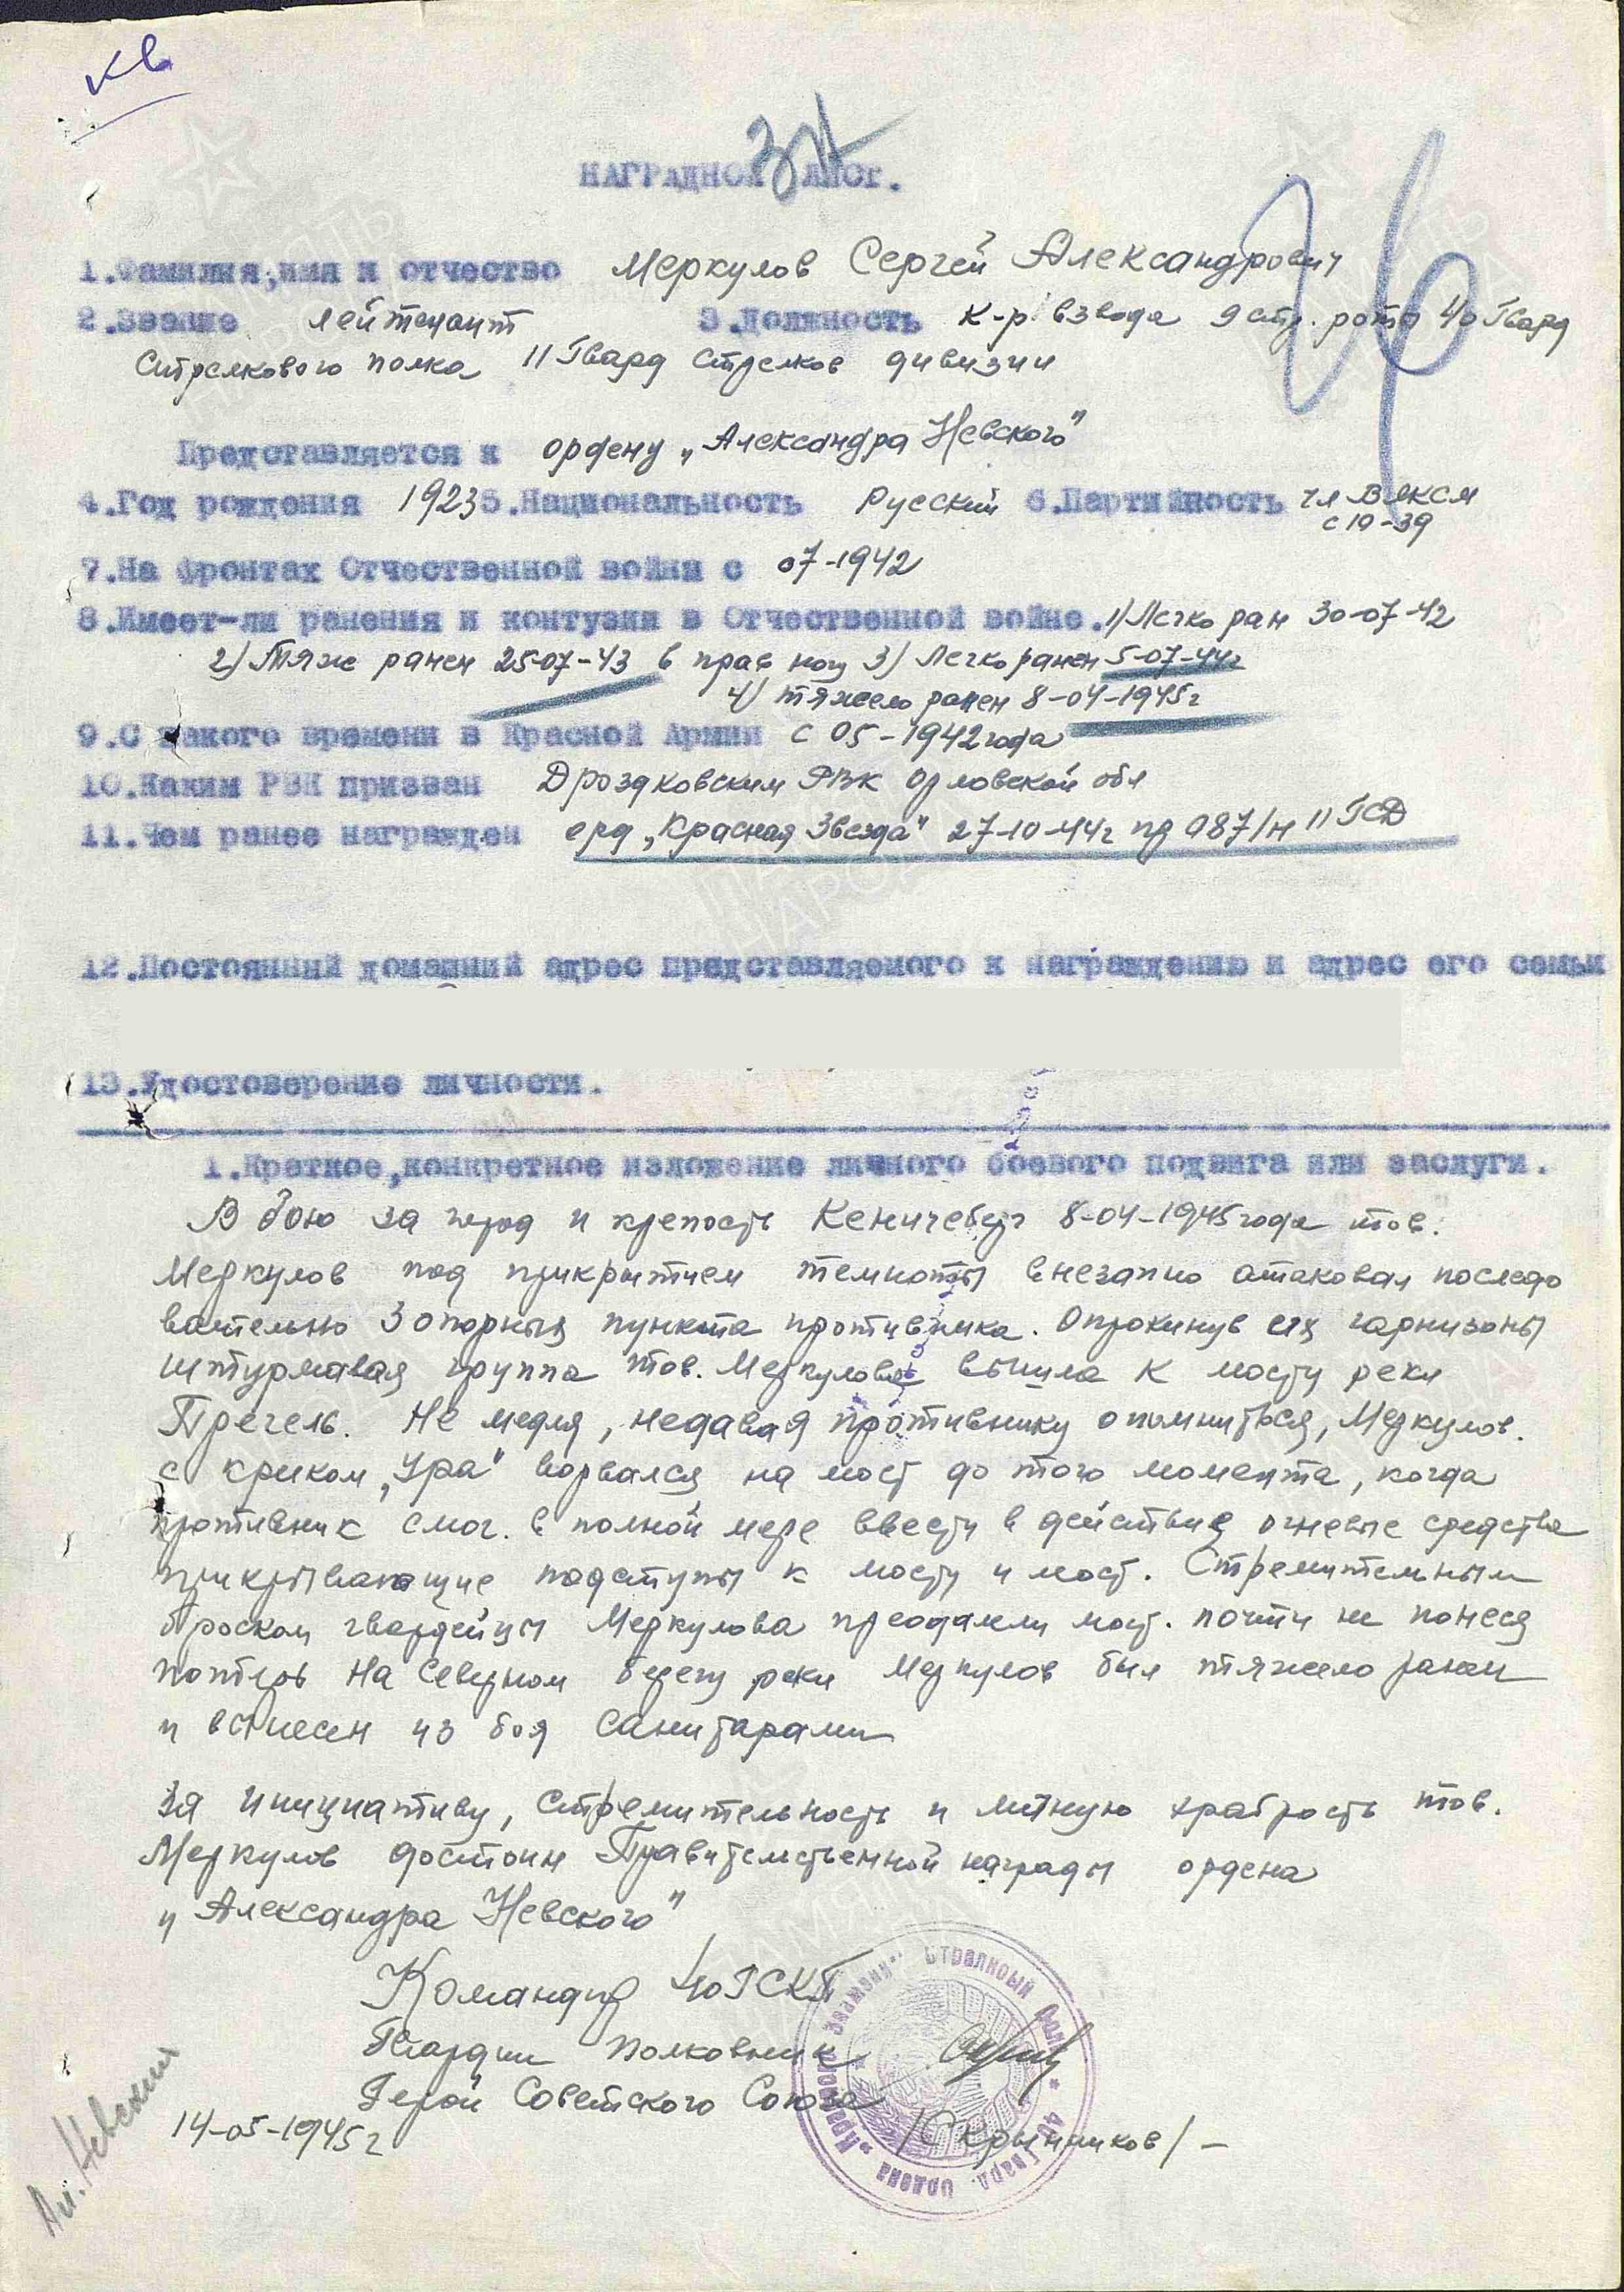 кв
НАГРАДНОЙ ЛИСТ.
1.Фамилия,имя и отчество Меркулов Сергей Александрович
2.Звание лейтенант 3.Должность к-р взвода 9 стр. роты 40 Гвард
Стрелкового полка 11 Гвард Стрелков дивизии
Представляется к ордену „Александра Невского"
4.Год рождения 1923 5.Национальность Русский 6.Партийность чл ВЛКСМ
с 10-39
7.На фронтах Отчественной войны с 07-1942
8.Имеет-ли ранения и контузии в Отчественной войне. 1) Легко ран 30-07-42
2) Тяж ранен 25-07-43 в прав ногу 3) Легко ранен 5-07-44г
4) тяжело ранен 8-04-1945г
9.С какого времени в Красной Армии с 05-1942 года
10.Каким РВК призван Дроздковским РВК Орловской обл
11.Чем ранее награжден орд „Красная Звезда" 27-10-44г пр 087/н 11 ГСД
12.Постоянный домашний адрес представляемого к награждению и адрес его семьи
13.Удостоверение личности.
1.Краткое,конкретное изложение личного боевого подвига или заслуги.
В бою за город и крепость Кенигсберг 8-04-1945 года тов.
Меркулов под прикрытием темноты внезапно атаковал последо
вательно 3 опорных пункта противника. Опрокинув их гарнизоны
штурмовая группа тов. Меркулова вышла к мосту реки
Прегель. Не медля, недавая противнику опомниться, Меркулов.
с криком „Ура" ворвался на мост до того момента, когда
противник смог. в полной мере ввести в действие огневые средства
прикрывающие подступы к мосту и мост. Стремительным
броском гвардейцы Меркулова преодолели мост. почти не понеся
потерь На северном берегу реки Меркулов был тяжело ранен
и вынесен из боя санитарами
За инициативу, стремительность и личную храбрость тов.
Меркулов достоин Правительственной награды ордена
„Александра Невского"
Командир 40 ГСКП
Гвардии полковник
Герой Советского Союза
14-05-1945г /Скрынников/ –
Ал. Невский
40 Гвард. ордена „Красного Знамени" Стрелковый полк